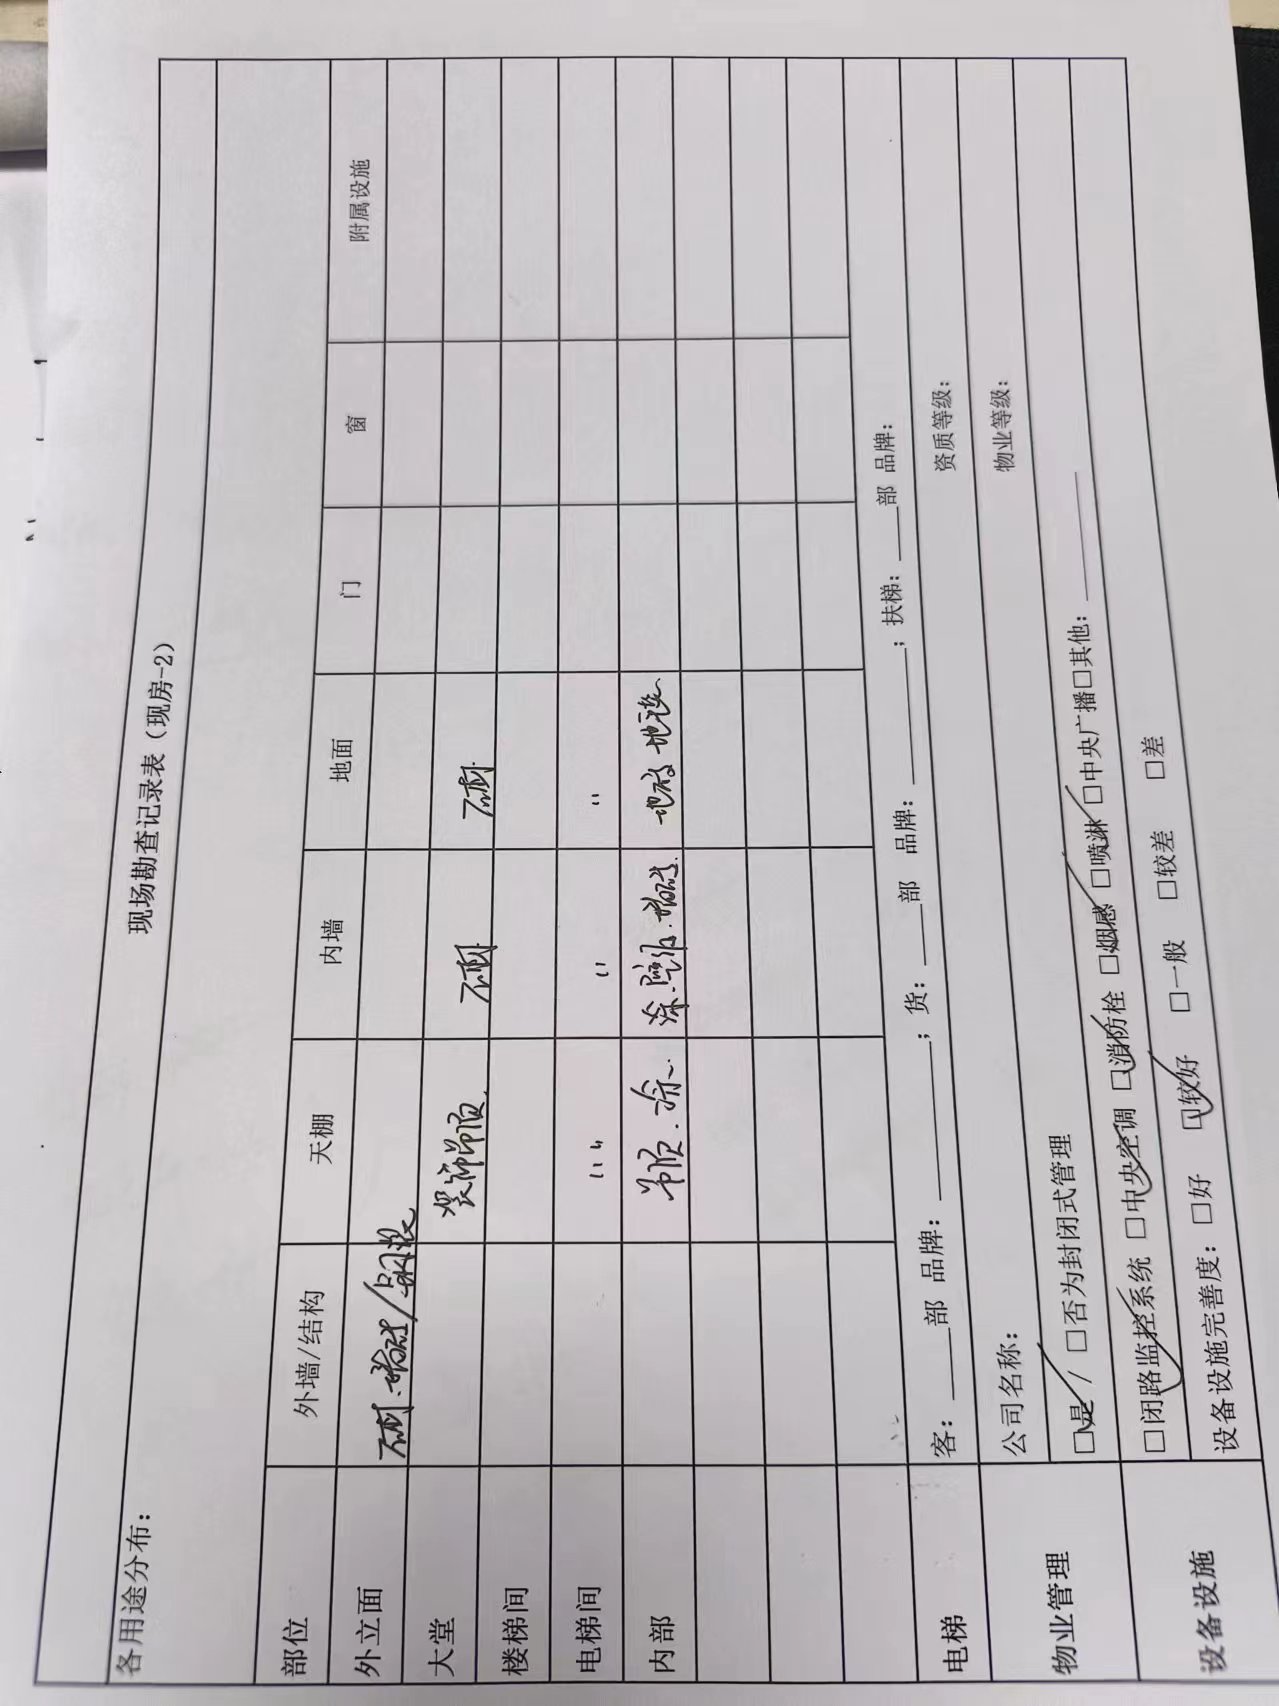 现场勘查记录表（现房-2）
各用途分布：
部位 外墙/结构 天棚 内墙 地面 门 窗 附属设施
外立面 石材.玻璃/铝板
大堂 装饰吊顶 石材 石材
楼梯间
电梯间 〃 〃 〃
内部 吊顶.涂 涂.壁纸.玻璃 地砖 地毯
电梯 客：____部 品牌：________；货：____部 品牌：________；扶梯：____部 品牌：
物业管理 公司名称： 资质等级：
☑是 / □否为封闭式管理 物业等级：
设备设施 ☑闭路监控系统 ☑中央空调 ☑消防栓 ☑烟感 ☑喷淋 □中央广播□其他：________
设备设施完善度：□好 ☑较好 □一般 □较差 □差